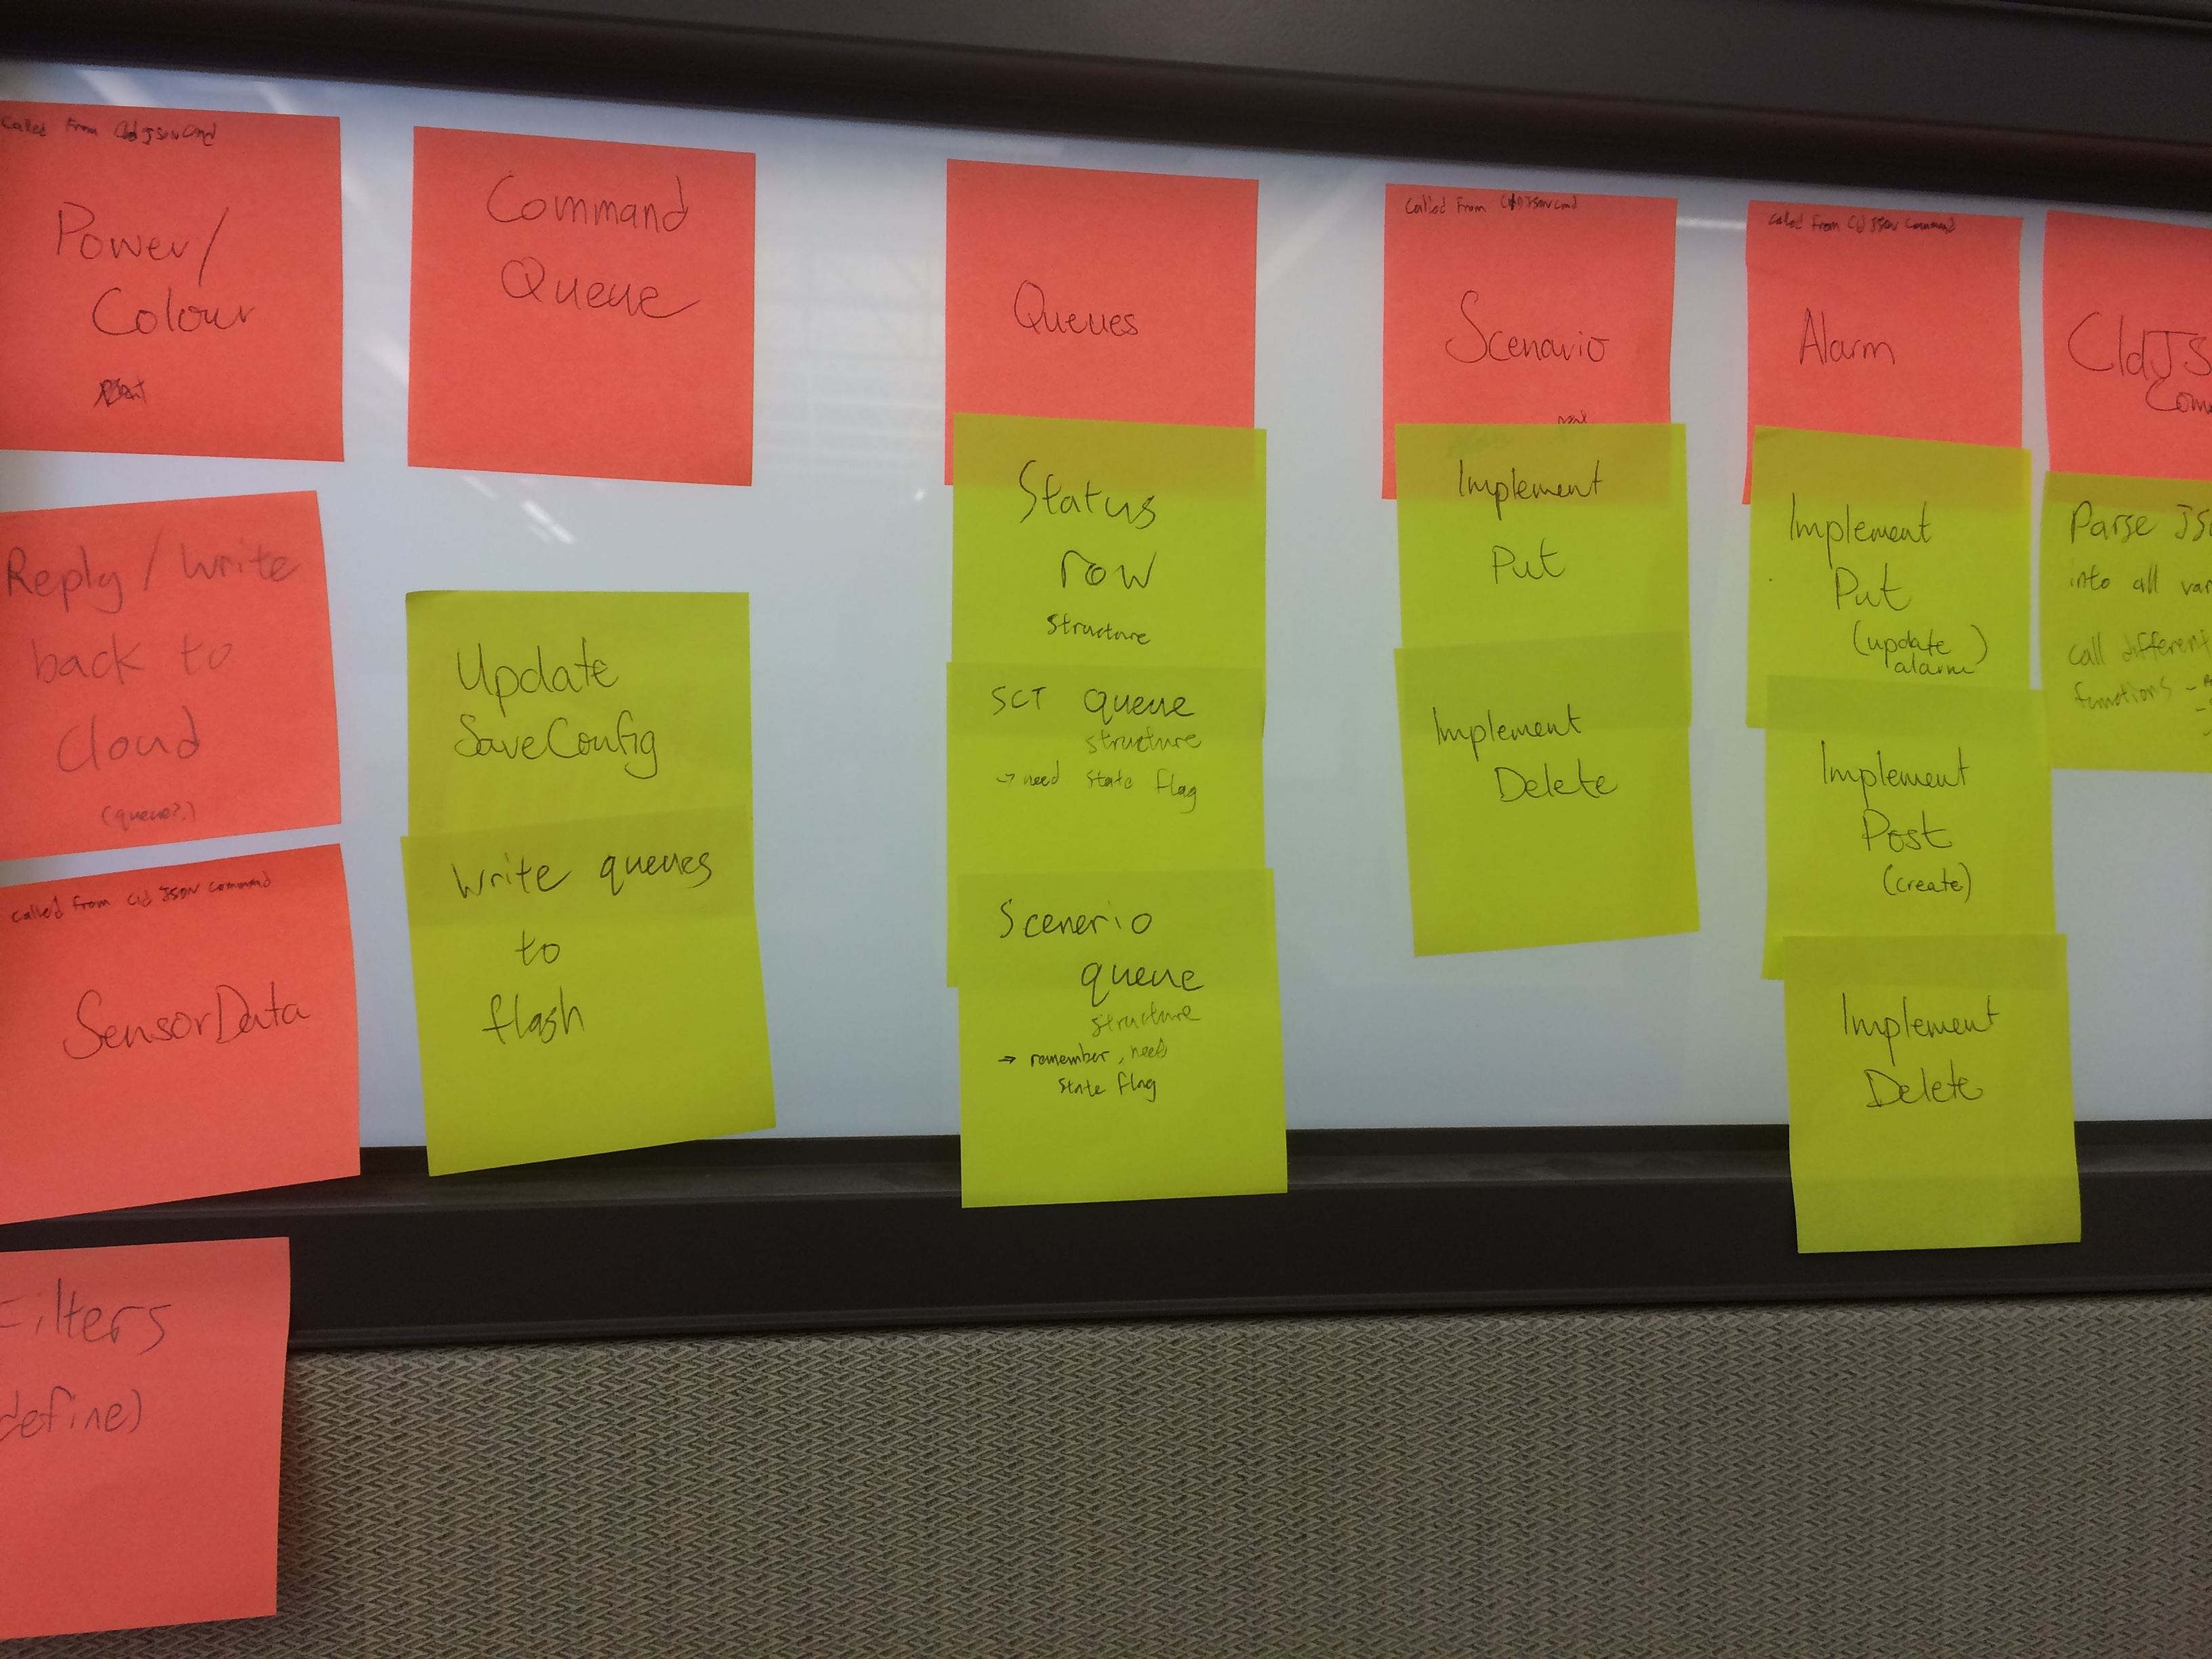 Called From Cld JSON Cmd
Power/
Colour
Reply / Write
back to
Cloud
(queue?)
called from Cld JSON command
SensorData
Filters
define)
Command
Queue
Update
SaveConfig
Write queues
to
flash
Queues
Status
row
structure
SCT queue
structure
→ need state flag
Scenerio
queue
structure
→ remember, need
state flag
Called From Cld JSON cmd
Scenario
Implement
Put
Implement
Delete
Called From Cld JSON Command
Alarm
Implement
Put
(update
alarm)
Implement
Post
(create)
Implement
Delete
CldJS
Com
Parse JS
into all var
call different
functions -